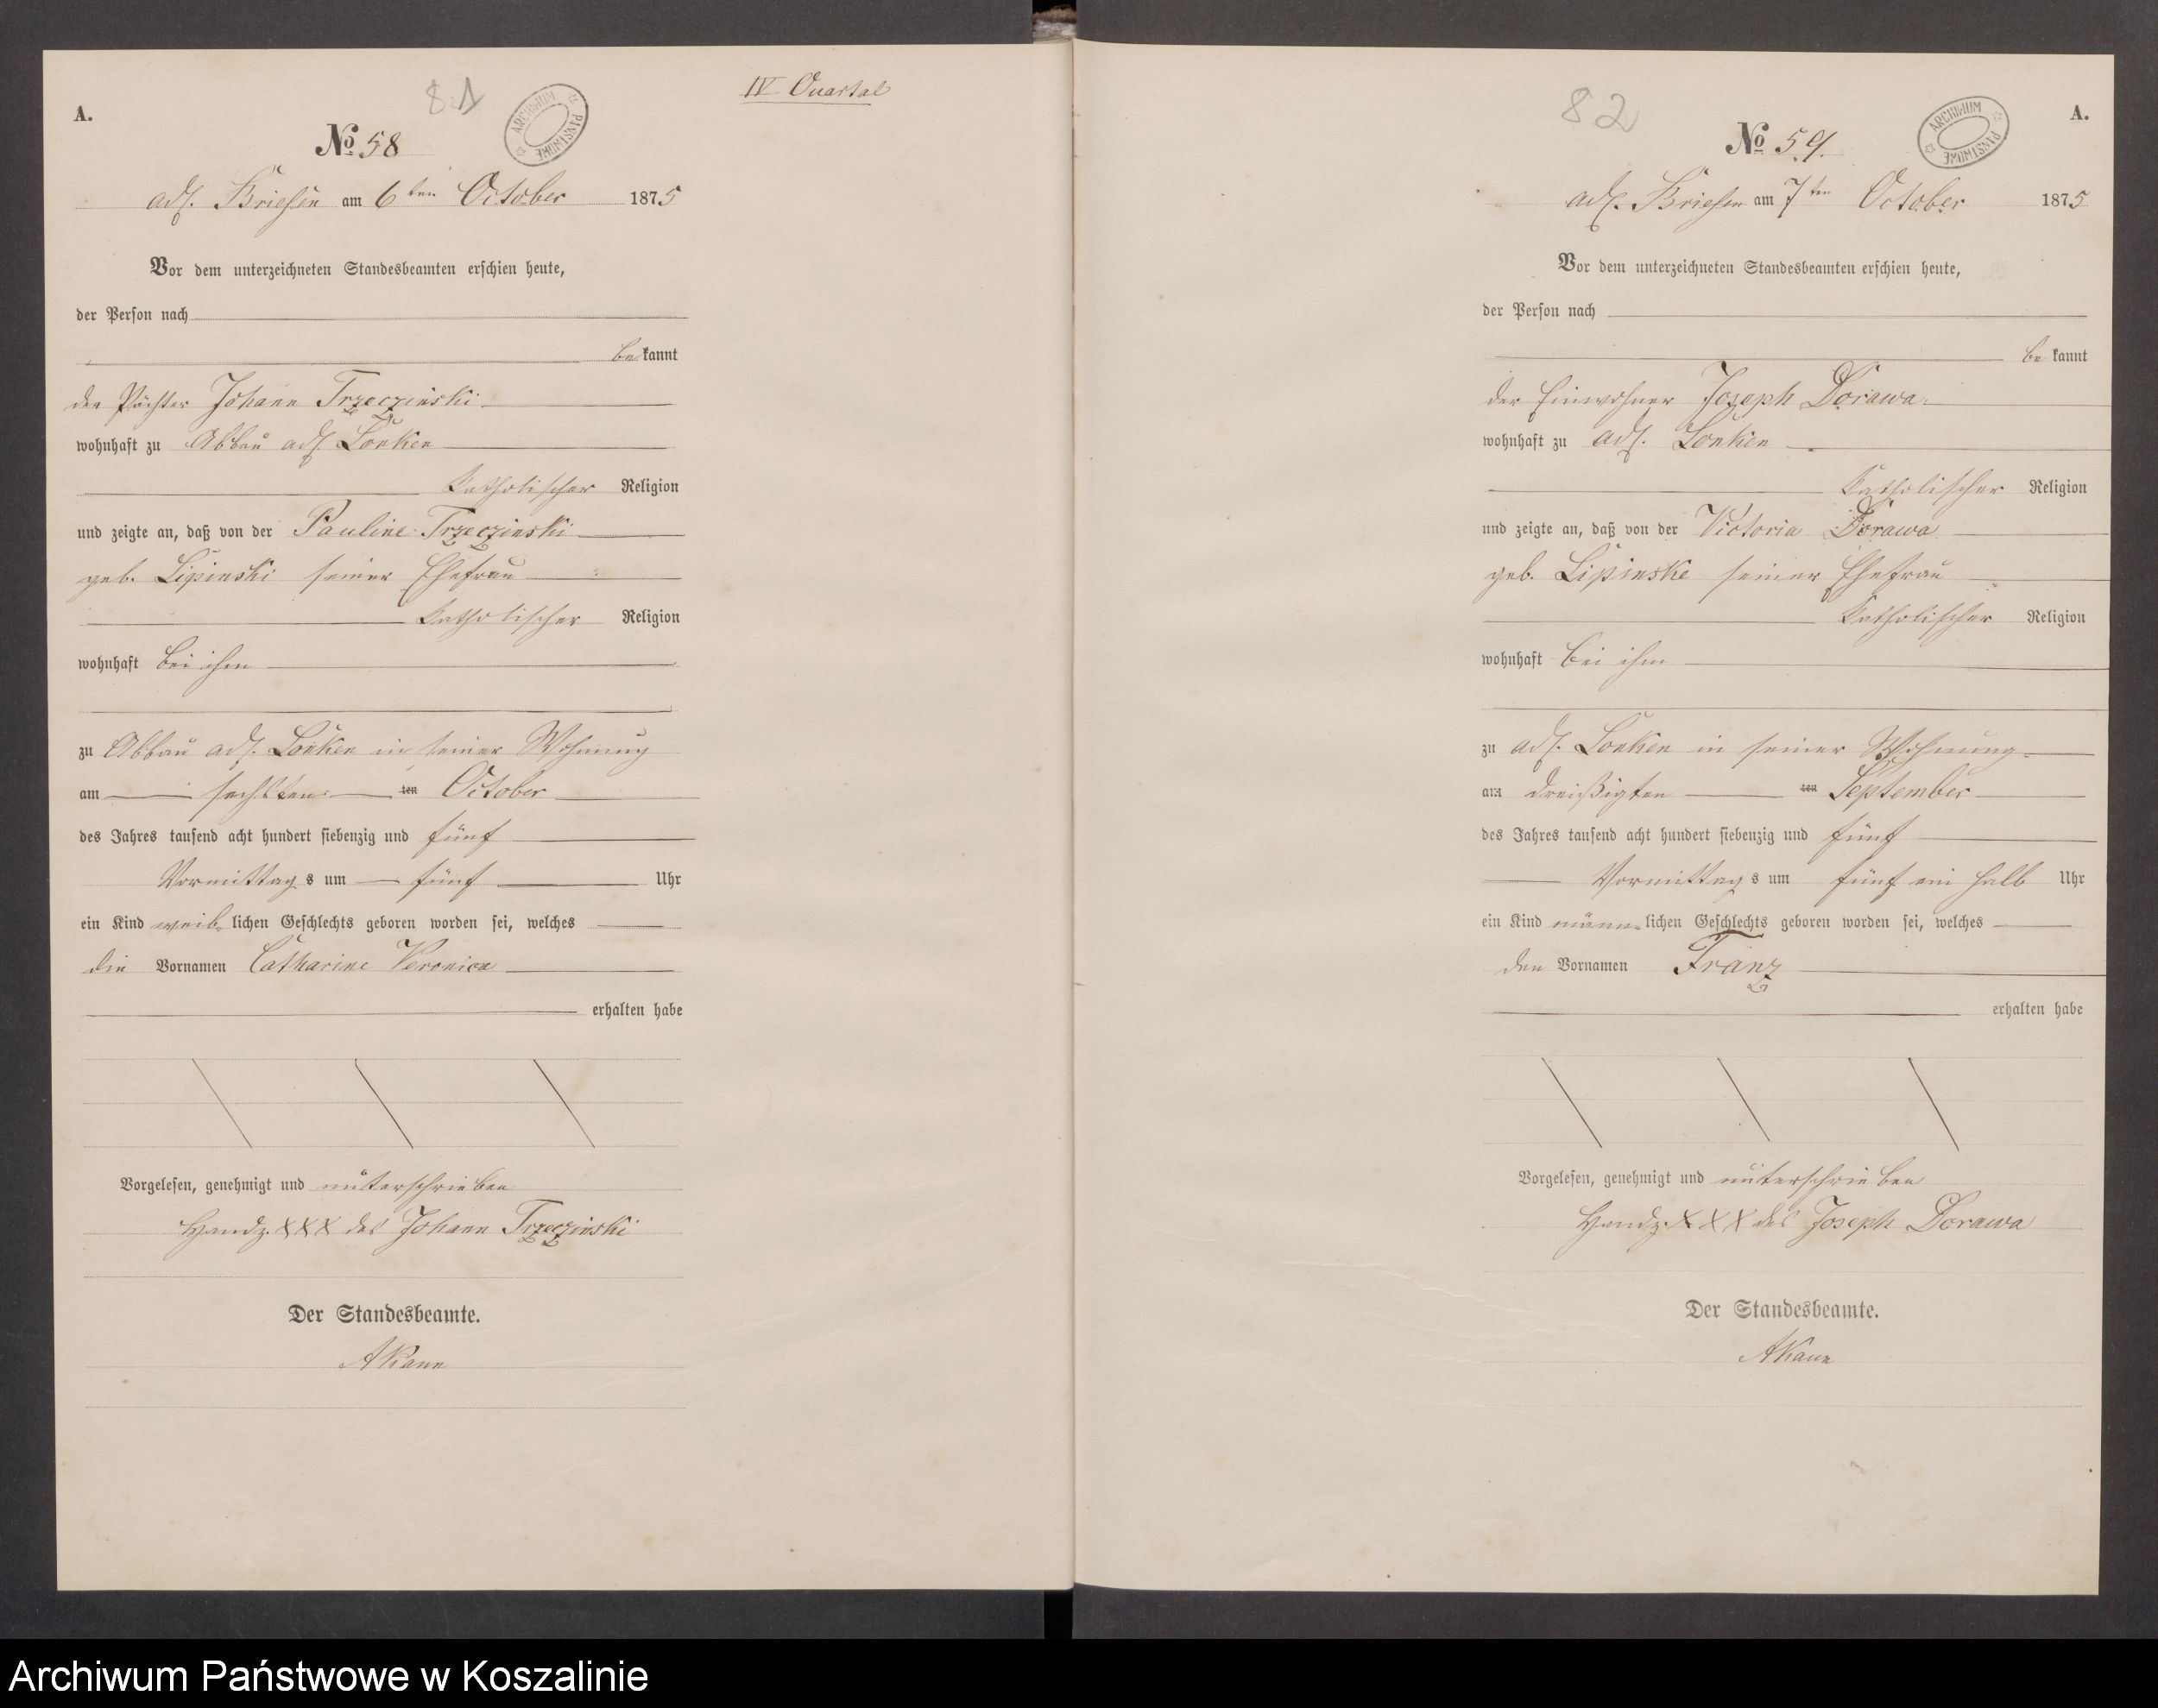 A.
81
IV Quartal
ARCHIWUM PAŃSTWOWE
№ 58
adl. Briesen am 6ten October 1875
Vor dem unterzeichneten Standesbeamten erschien heute,
der Person nach
be kannt
der Pächter Johann Trzeczinski
wohnhaft zu Abbau adl. Lonken
katholischer Religion
und zeigte an, daß von der Pauline Trzeczinski
geb. Lipinski seiner Ehefrau
katholischer Religion
wohnhaft bei ihm
zu Abbau adl. Lonken in seiner Wohnung
am sechsten ten October
des Jahres tausend acht hundert siebenzig und fünf
Vormittag s um fünf Uhr
ein Kind weib- lichen Geschlechts geboren worden sei, welches
die Vornamen Catharine Veronica
erhalten habe
Vorgelesen, genehmigt und unterschrieben
Handz. XXX des Johann Trzeczinski
Der Standesbeamte.
AKann
82
ARCHIWUM PAŃSTWOWE
A.
№ 59.
adl. Briesen am 7ten October 1875
Vor dem unterzeichneten Standesbeamten erschien heute,
der Person nach
be kannt
der Einwohner Joseph Dorawa
wohnhaft zu adl. Lonken
katholischer Religion
und zeigte an, daß von der Victoria Dorawa
geb. Lipinske seiner Ehefrau
katholischer Religion
wohnhaft bei ihm
zu adl. Lonken in seiner Wohnung
am dreißigten ten September
des Jahres tausend acht hundert siebenzig und fünf
Vormittag s um fünf ein halb Uhr
ein Kind männ- lichen Geschlechts geboren worden sei, welches
den Vornamen Franz
erhalten habe
Vorgelesen, genehmigt und unterschrieben
Handz. XXX des Joseph Dorawa
Der Standesbeamte.
AKann
Archiwum Państwowe w Koszalinie